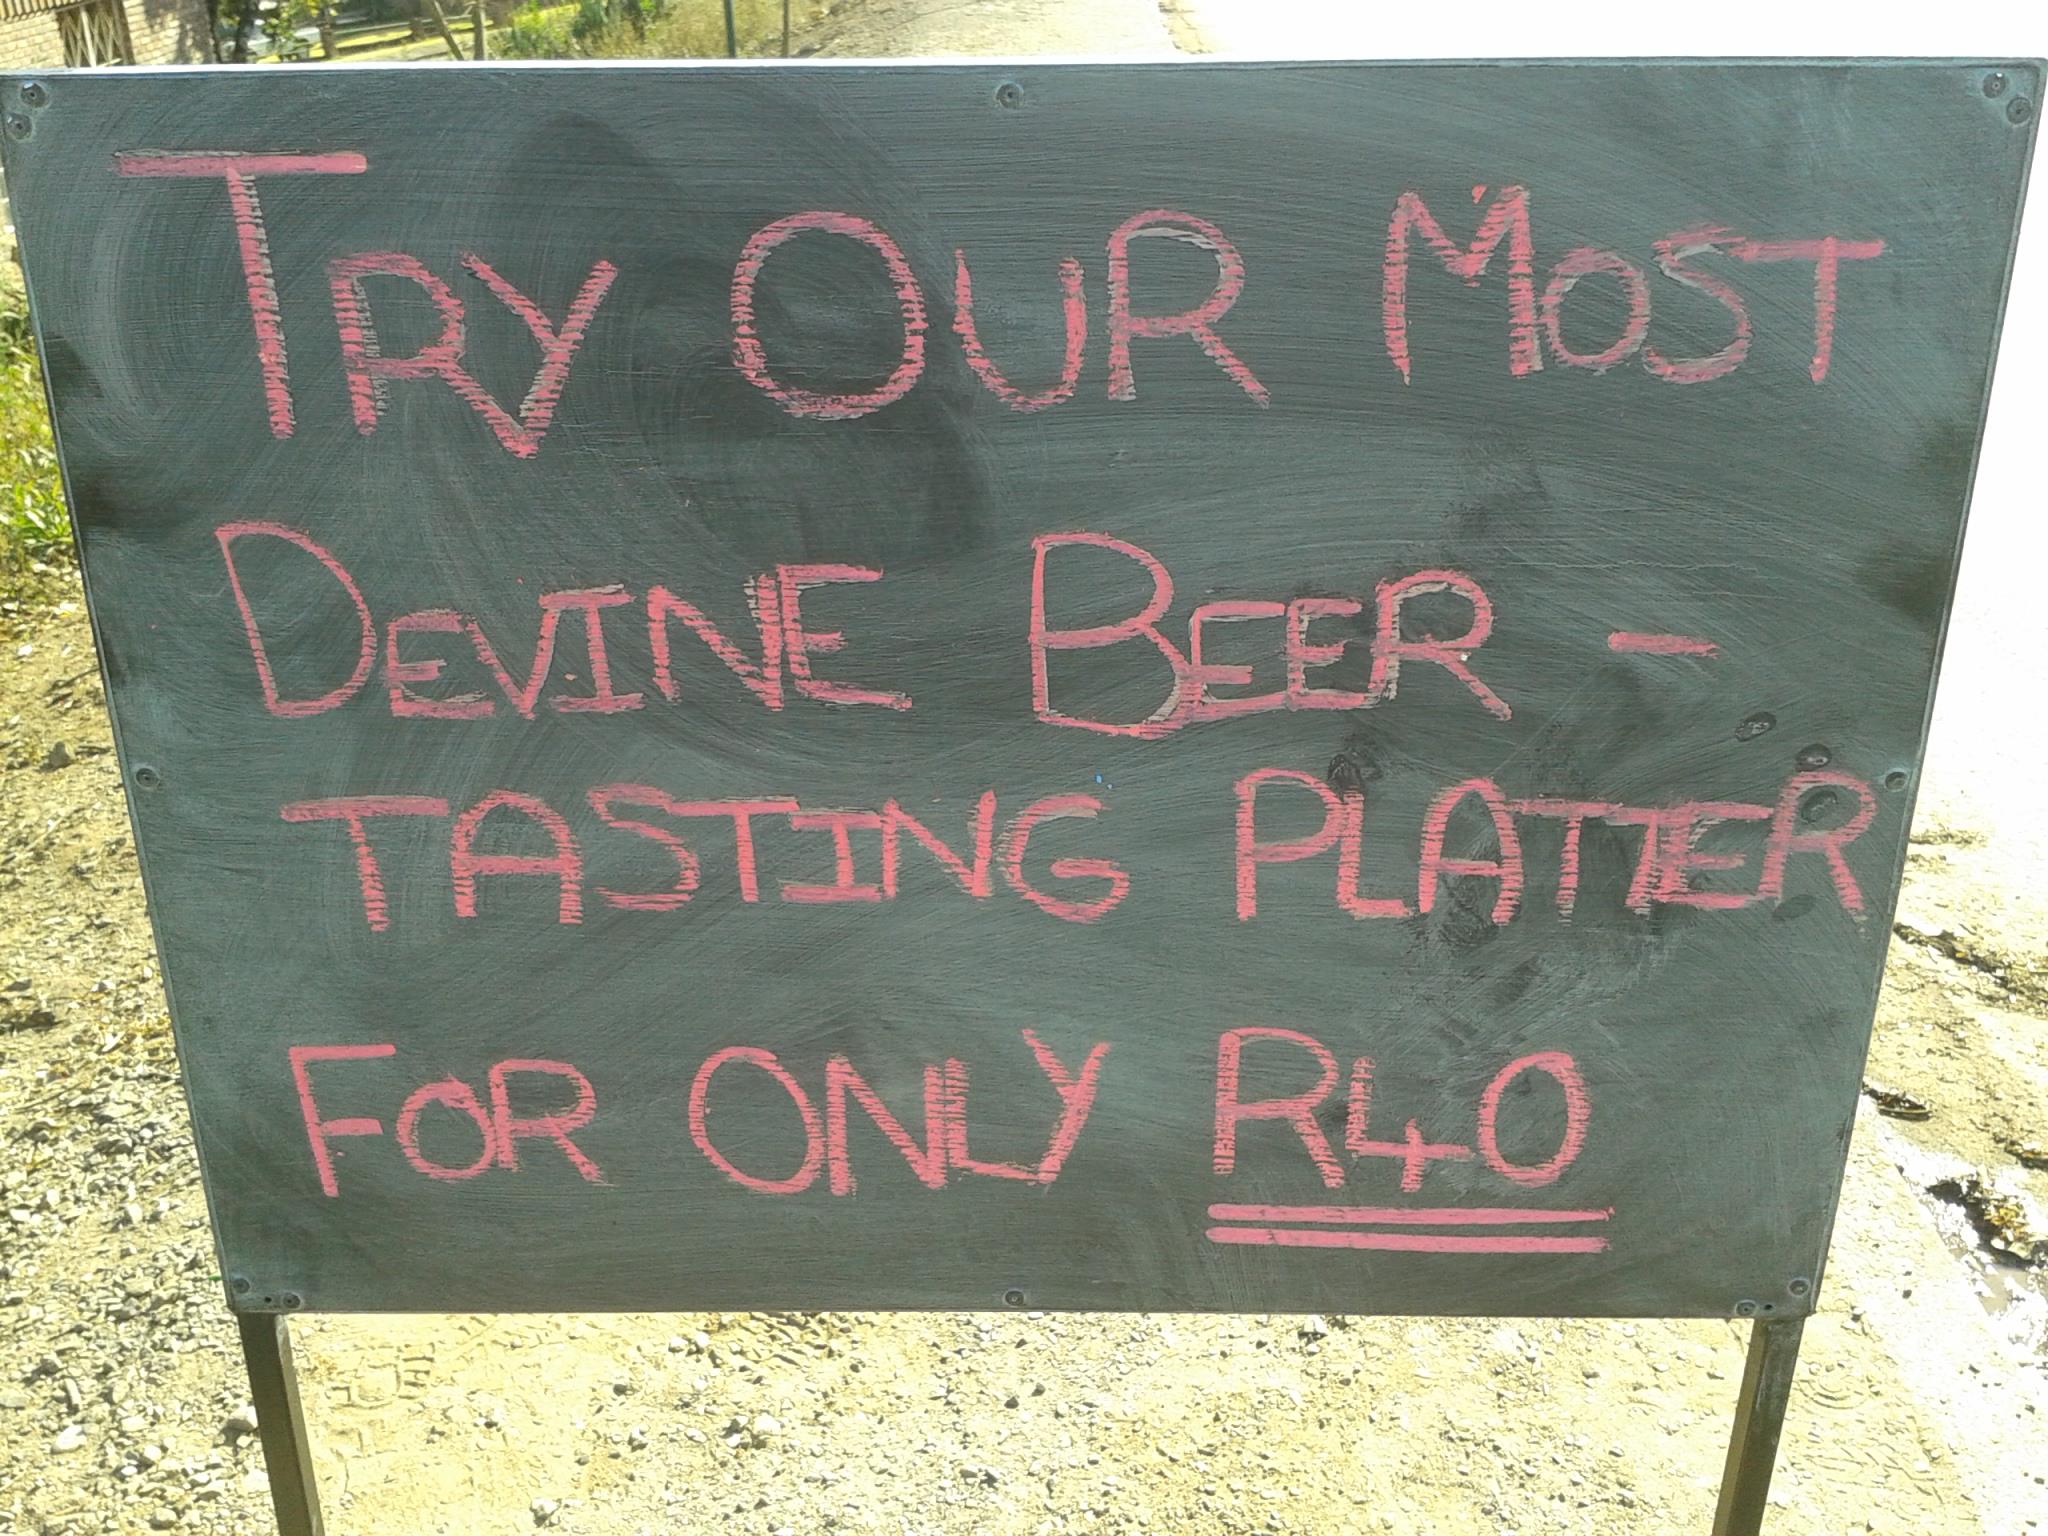 TRY OUR MOST
DEVINE BEER -
TASTING PLATTER
FOR ONLY R40